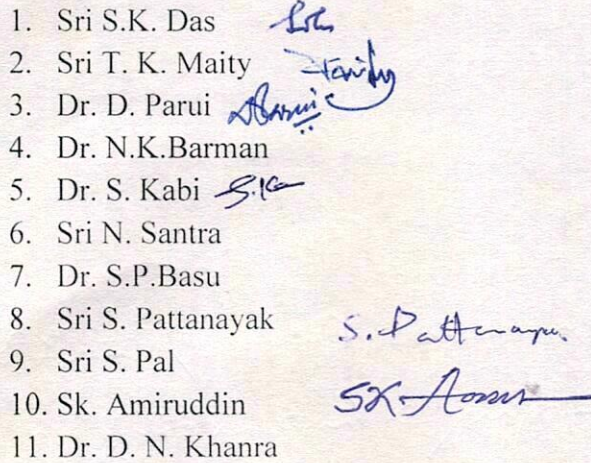 1. Sri S.K. Das
2. Sri T. K. Maity
3. Dr. D. Parui DParui
4. Dr. N.K.Barman
5. Dr. S. Kabi
6. Sri N. Santra
7. Dr. S.P.Basu
8. Sri S. Pattanayak S. Pattanayak
9. Sri S. Pal
10. Sk. Amiruddin SK
11. Dr. D. N. Khanra